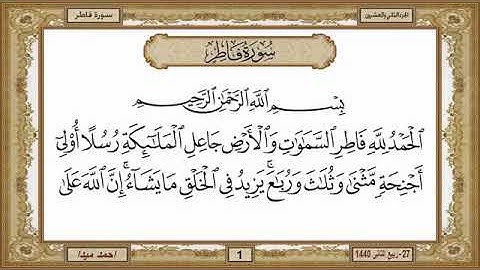 الجزء الثاني والعشرين
سورة فاطر
سُورَةُ فَاطِرٍ
بِسْمِ ٱللَّهِ ٱلرَّحْمَٰنِ ٱلرَّحِيمِ
ٱلْحَمْدُ لِلَّهِ فَاطِرِ ٱلسَّمَٰوَٰتِ وَٱلْأَرْضِ جَاعِلِ ٱلْمَلَٰٓئِكَةِ رُسُلًا أُو۟لِىٓ
أَجْنِحَةٍ مَّثْنَىٰ وَثُلَٰثَ وَرُبَٰعَ ۚ يَزِيدُ فِى ٱلْخَلْقِ مَا يَشَآءُ ۚ إِنَّ ٱللَّهَ عَلَىٰ
27- ربيع الثاني 1440
1
احمد ميدا